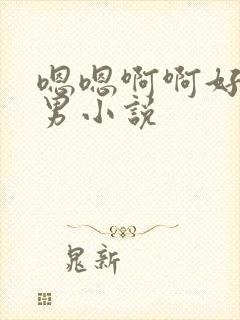 嗯嗯啊啊好
男小說
晁新